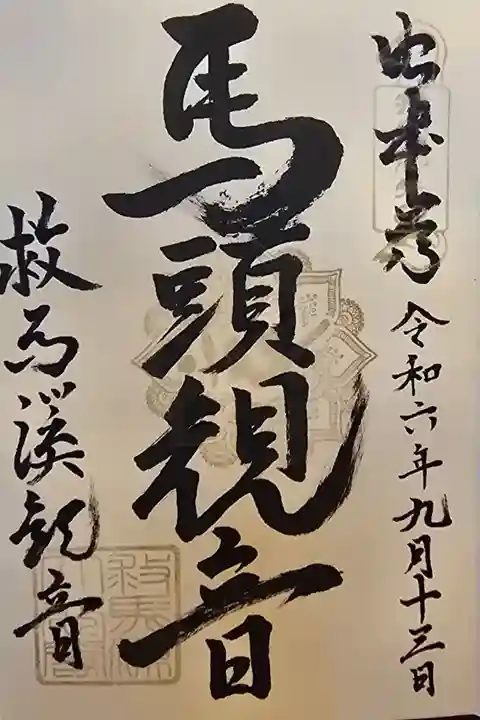 御本尊
令和六年九月十三日
馬頭観音
救馬溪観音